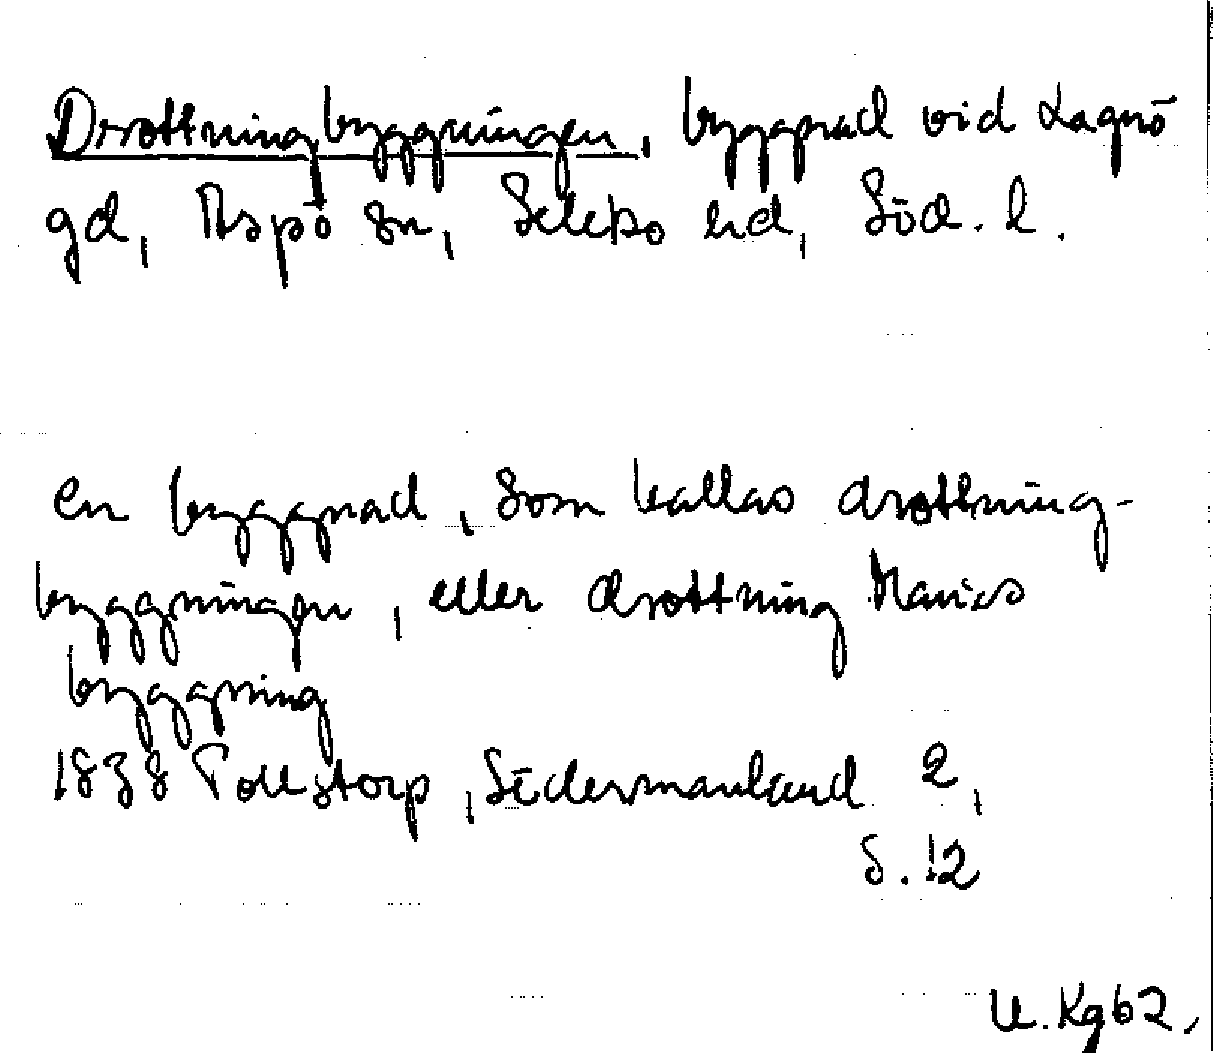 Drottningbyggningen, byggnad vid Lagnö
gd, Aspö sn, Selebo hd, Söd. l.
en byggnad, som kallas drottning-
byggningen, eller drottning Marias
byggning
1838 Tollstorp, Södermanland 2,
s. 12
U. Kg 62,